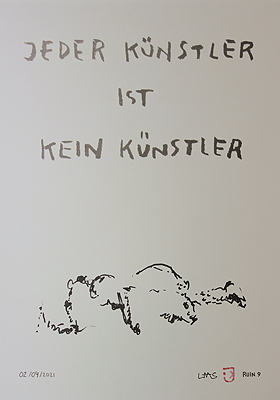 JEDER KÜNSTLER
IST
KEIN KÜNSTLER
02/09/2021
LMS
RUIN. 9